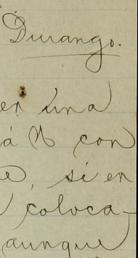 Durango.
en una
á N con
e, si en
coloca-
aunque